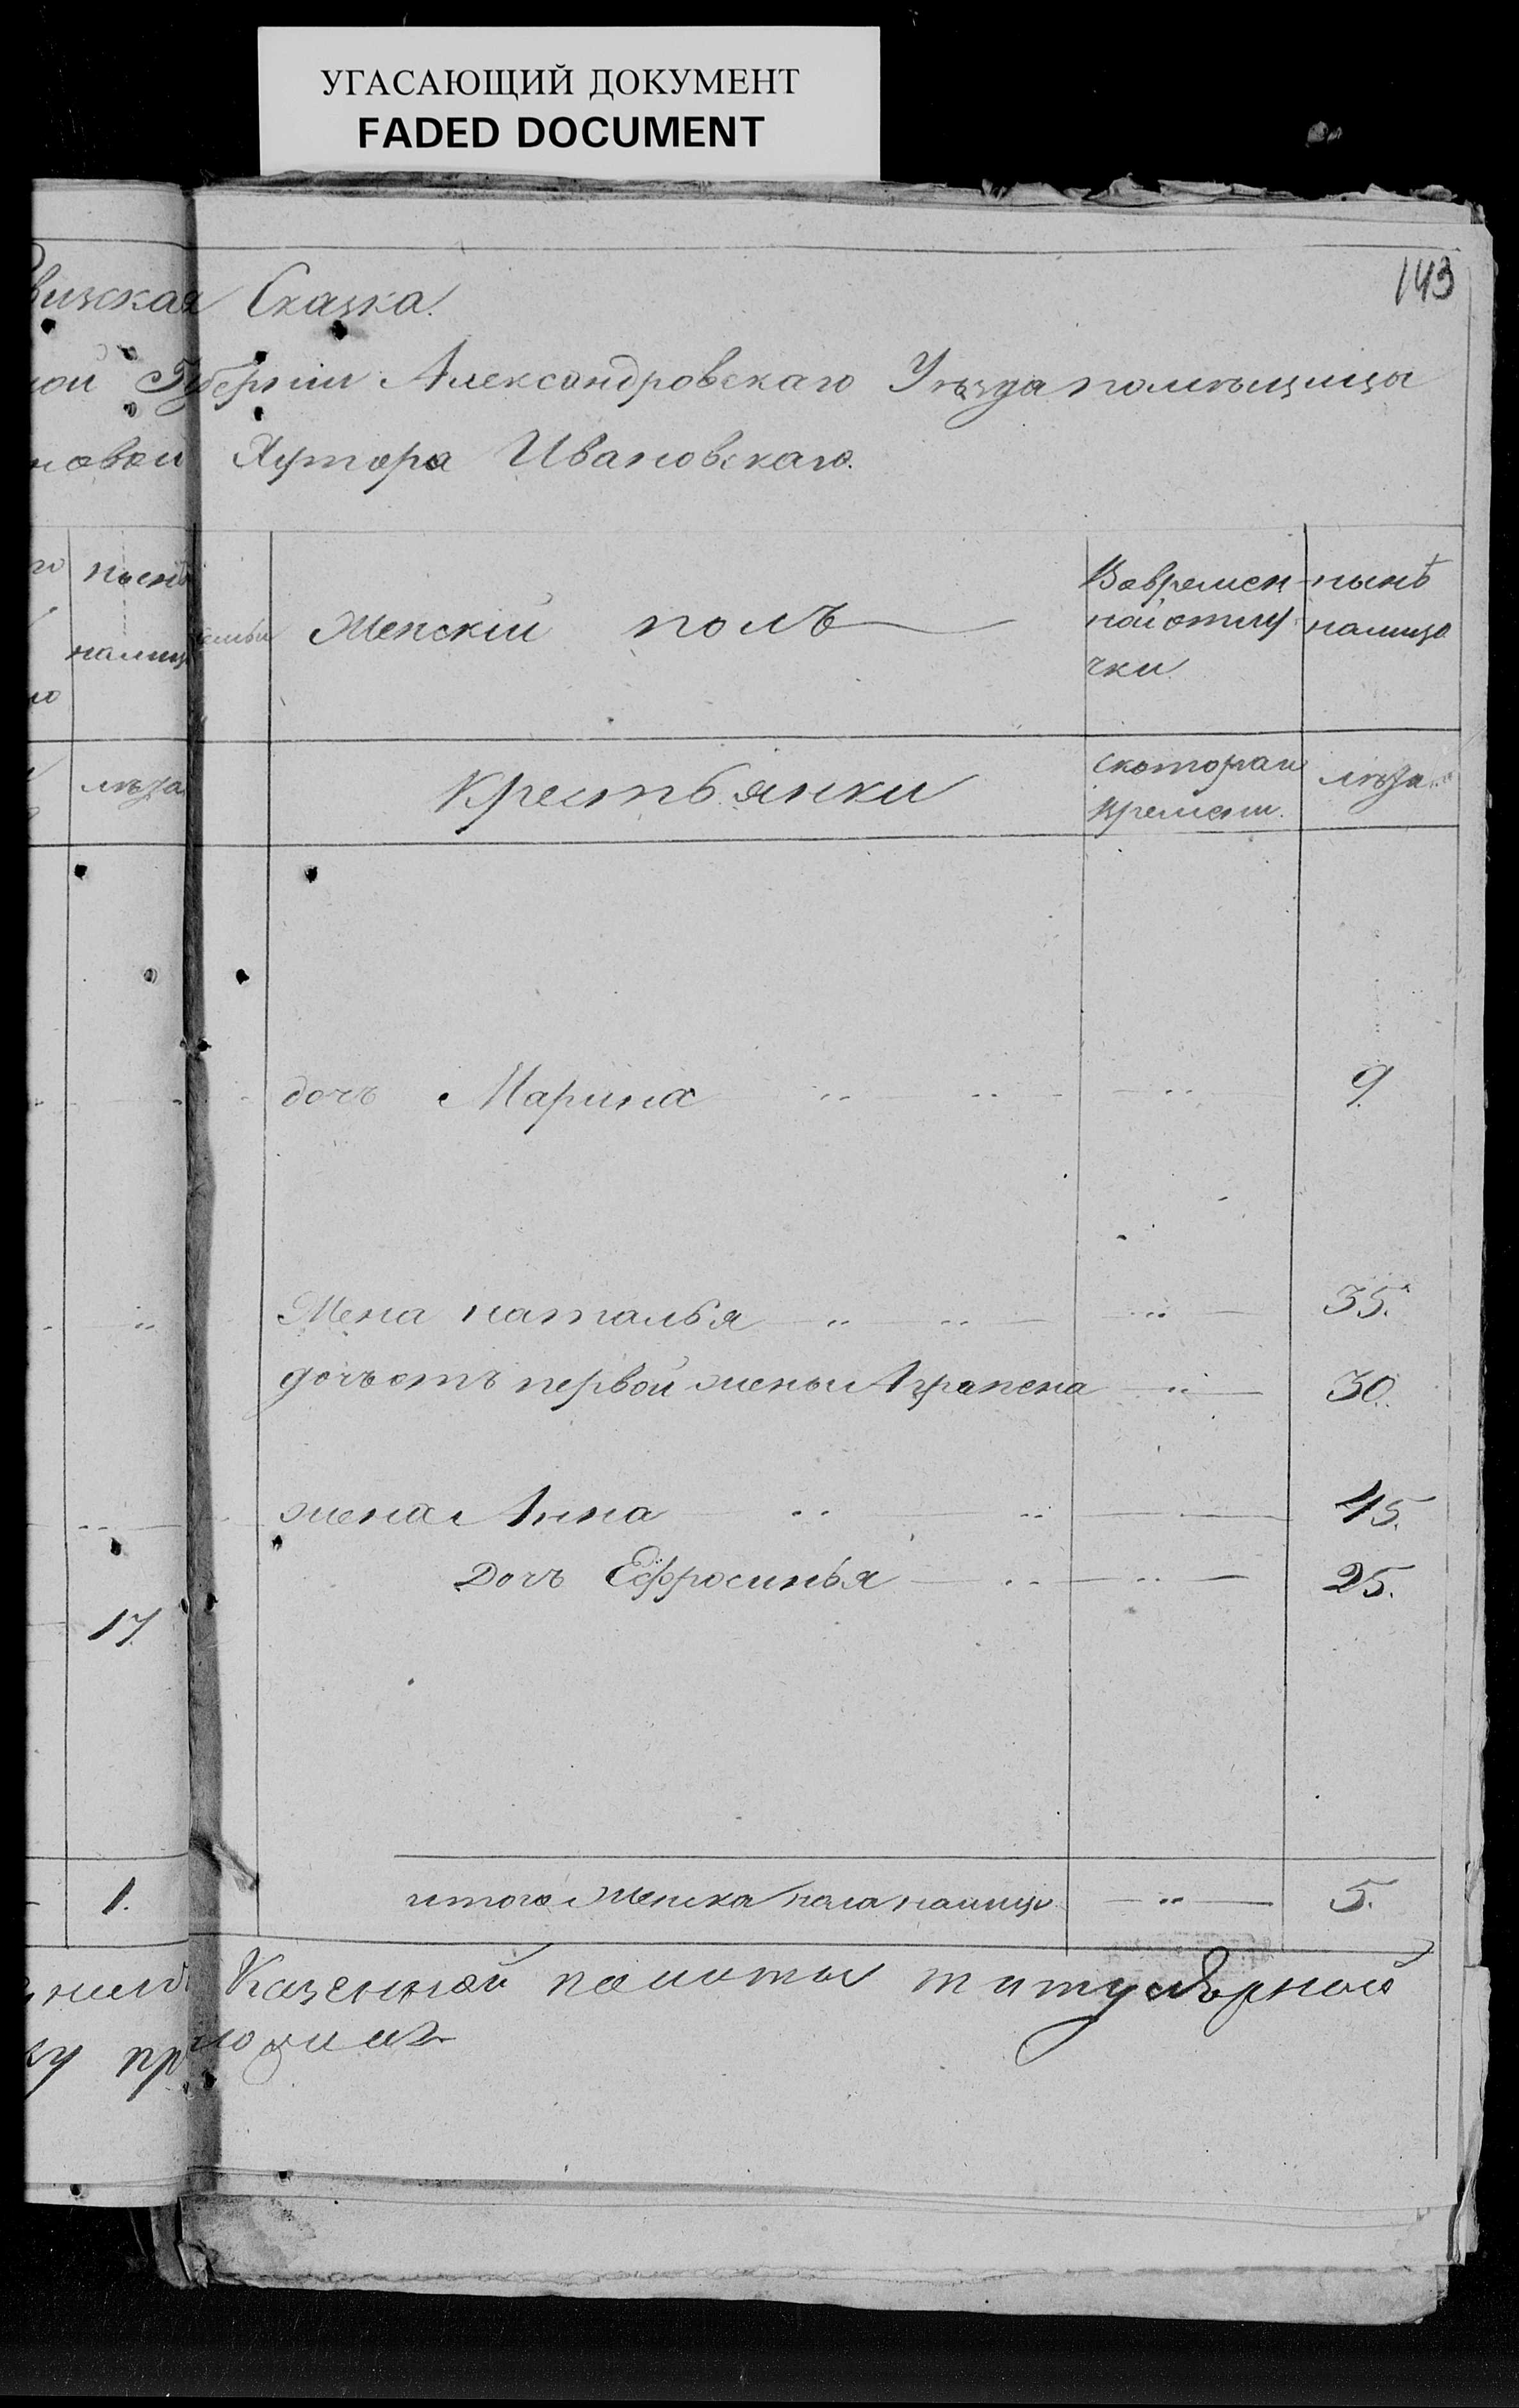 УГАСАЮЩИЙ ДОКУМЕНТ
FADED DOCUMENT
143
визская Сказка.
ной Губернии Александровскаго Уѣзда помѣщицы
новой Хутора Ивановскаго.
нынѣ
налицо
лѣта
17
1.
семьи
Женскій полъ
Вовремен
ной отлу
чки
нынѣ
налицо
Крестьянки
скотораго
времени.
лѣта
дочь Марина 9.
Жена наталья 35.
дочь отъ первой жены Аграпена 30.
жена Анна 45.
Дочь Ефросинья 25.
итого женска пола налицо 5.
Казенной палаты титулярной
ку приложил